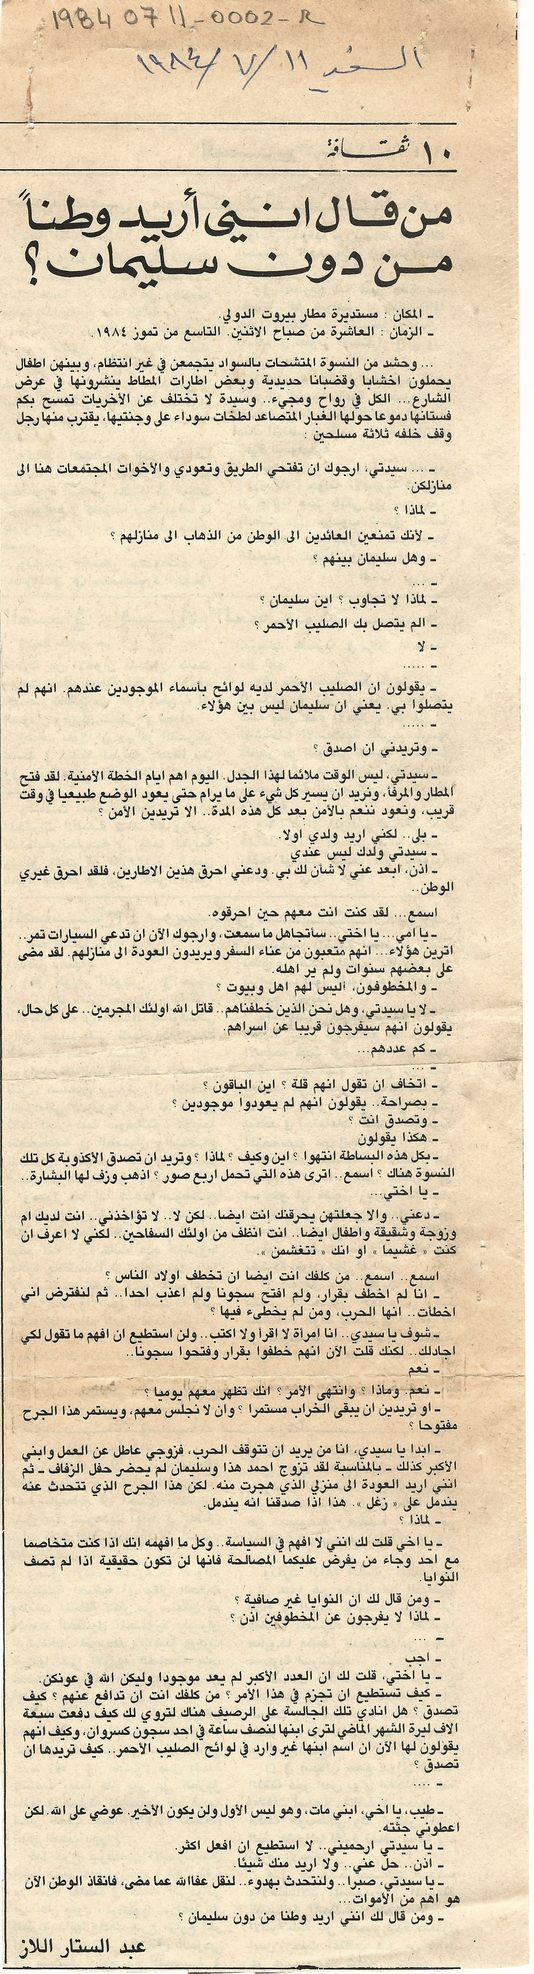 1984 07 11-0002-R
السفير ١١/ ٧/ ١٩٨٤
١٠ ثقافة
من قال انني أريد وطناً
من دون سليمان؟
ـ المكان : مستديرة مطار بيروت الدولي.
ـ الزمان : العاشرة من صباح الاثنين. التاسع من تموز ١٩٨٤.
... وحشد من النسوة المتشحات بالسواد يتجمعن في غير انتظام، وبينهن اطفال
يحملون اخشابا وقضبانا حديدية وبعض اطارات المطاط ينشرونها في عرض
الشارع... الكل في رواح ومجيء.. وسيدة لا تختلف عن الأخريات تمسح بكم
فستانها دموعا حولها الغبار المتصاعد لطخات سوداء على وجنتيها، يقترب منها رجل
وقف خلفه ثلاثة مسلحين :
ـ ... سيدتي، ارجوك ان تفتحي الطريق وتعودي والأخوات المجتمعات هنا الى
منازلكن.
ـ لماذا ؟
ـ لأنك تمنعين العائدين الى الوطن من الذهاب الى منازلهم ؟
ـ وهل سليمان بينهم ؟
ـ ...
ـ لماذا لا تجاوب ؟ اين سليمان ؟
ـ الم يتصل بك الصليب الأحمر ؟
ـ لا
ـ .....
ـ يقولون ان الصليب الأحمر لديه لوائح بأسماء الموجودين عندهم. انهم لم
يتصلوا بي. يعني ان سليمان ليس بين هؤلاء.
ـ .....
ـ وتريدني ان اصدق ؟
ـ سيدتي، ليس الوقت ملائما لهذا الجدل. اليوم اهم ايام الخطة الأمنية. لقد فتح
المطار والمرفأ، ونريد ان يسير كل شيء على ما يرام حتى يعود الوضع طبيعيا في وقت
قريب، ونعود ننعم بالأمن بعد كل هذه المدة.. الا تريدين الأمن ؟
ـ بلى.. لكني اريد ولدي اولا.
ـ سيدتي ولدك ليس عندي
ـ اذن، ابعد عني لا شأن لك بي. ودعني احرق هذين الاطارين، فلقد احرق غيري
الوطن..
اسمع... لقد كنت انت معهم حين احرقوه.
ـ يا امي... يا اختي.. سأتجاهل ما سمعت، وارجوك الآن ان تدعي السيارات تمر..
اترين هؤلاء... انهم متعبون من عناء السفر ويريدون العودة الى منازلهم. لقد مضى
على بعضهم سنوات ولم ير اهله.
ـ والمخطوفون، اليس لهم اهل وبيوت ؟
ـ لا يا سيدتي، وهل نحن الذين خطفناهم.. قاتل الله اولئك المجرمين.. على كل حال،
يقولون انهم سيفرجون قريبا عن اسراهم.
ـ كم عددهم...
ـ ...
ـ اتخاف ان تقول انهم قلة ؟ اين الباقون ؟
ـ بصراحة.. يقولون انهم لم يعودوا موجودين ؟
ـ وتصدق انت ؟
ـ هكذا يقولون
ـ بكل هذه البساطة انتهوا ؟ اين وكيف ؟ لماذا ؟ وتريد ان تصدق الأكذوبة كل تلك
النسوة هناك ؟ اسمع.. اترى هذه التي تحمل اربع صور ؟ اذهب وزف لها البشارة..
ـ يا اختي...
ـ دعني.. والا جعلتهن يحرقنك انت ايضا.. لكن لا.. لا تؤاخذني.. انت لديك ام
وزوجة وشقيقة واطفال ايضا.. انت انظف من اولئك السفاحين.. لكني لا اعرف ان
كنت « غشيما » او انك « تتغشمن ».
اسمع.. اسمع.. من كلفك انت ايضا ان تخطف اولاد الناس ؟
ـ انا لم اخطف بقرار، ولم افتح سجونا ولم اعذب احدا.. ثم لنفترض اني
اخطأت.. انها الحرب، ومن لم يخطىء فيها ؟
ـ شوف يا سيدي.. انا امرأة لا اقرأ ولا اكتب.. ولن استطيع ان افهم ما تقول لكي
اجادلك.. لكنك قلت الآن انهم خطفوا بقرار وفتحوا سجونا..
ـ نعم
ـ نعم. وماذا ؟ وانتهى الأمر ؟ انك تظهر معهم يوميا ؟
ـ او تريدين ان يبقى الخراب مستمرا ؟ وان لا نجلس معهم، ويستمر هذا الجرح
مفتوحا ؟
ـ ابدا يا سيدي، انا من يريد ان تتوقف الحرب، فزوجي عاطل عن العمل وابني
الأكبر كذلك ـ بالمناسبة لقد تزوج احمد هذا وسليمان لم يحضر حفل الزفاف ـ ثم
انني اريد العودة الى منزلي الذي هجرت منه. لكن هذا الجرح الذي تتحدث عنه
يندمل على « زغل ». هذا اذا صدقنا انه يندمل.
ـ لماذا ؟
ـ يا اخي قلت لك انني لا افهم في السياسة.. وكل ما افهمه انك اذا كنت متخاصما
مع احد وجاء من يفرض عليكما المصالحة فانها لن تكون حقيقية اذا لم تصف
النوايا.
ـ ومن قال لك ان النوايا غير صافية ؟
ـ لماذا لا يفرجون عن المخطوفين اذن ؟
ـ ...
ـ اجب
ـ يا اختي، قلت لك ان العدد الأكبر لم يعد موجودا وليكن الله في عونكن.
ـ كيف تستطيع ان تجزم في هذا الأمر ؟ من كلفك انت ان تدافع عنهم ؟ كيف
تصدق ؟ هل انادي تلك الجالسة على الرصيف هناك لتروي لك كيف دفعت سبعة
الاف ليرة الشهر الماضي لترى ابنها لنصف ساعة في احد سجون كسروان، وكيف انهم
يقولون لها الآن ان اسم ابنها غير وارد في لوائح الصليب الأحمر.. كيف تريدها ان
تصدق ؟
ـ ....
ـ طيب، يا اخي، ابني مات، وهو ليس الأول ولن يكون الأخير. عوضي على الله. لكن
اعطوني جثته.
ـ يا سيدتي ارحميني.. لا استطيع ان افعل اكثر.
ـ اذن.. حل عني.. ولا اريد منك شيئا.
ـ يا سيدتي، صبرا.. ولنتحدث بهدوء.. لنقل عفا الله عما مضى، فانقاذ الوطن الآن
هو اهم من الأموات...
ـ ومن قال لك انني اريد وطنا من دون سليمان ؟
عبد الستار اللاز